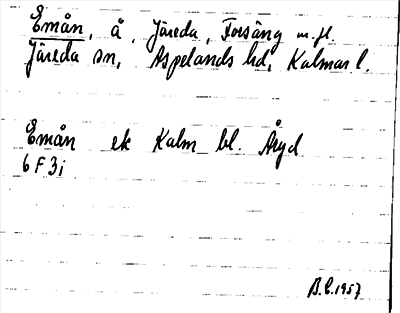 Emån, å, Järeda, Forsäng m.fl.
Järeda sn, Aspelands hd, Kalmar l.
Emån ek Kalm bl. Åryd
6 F 3i
B.L.1957